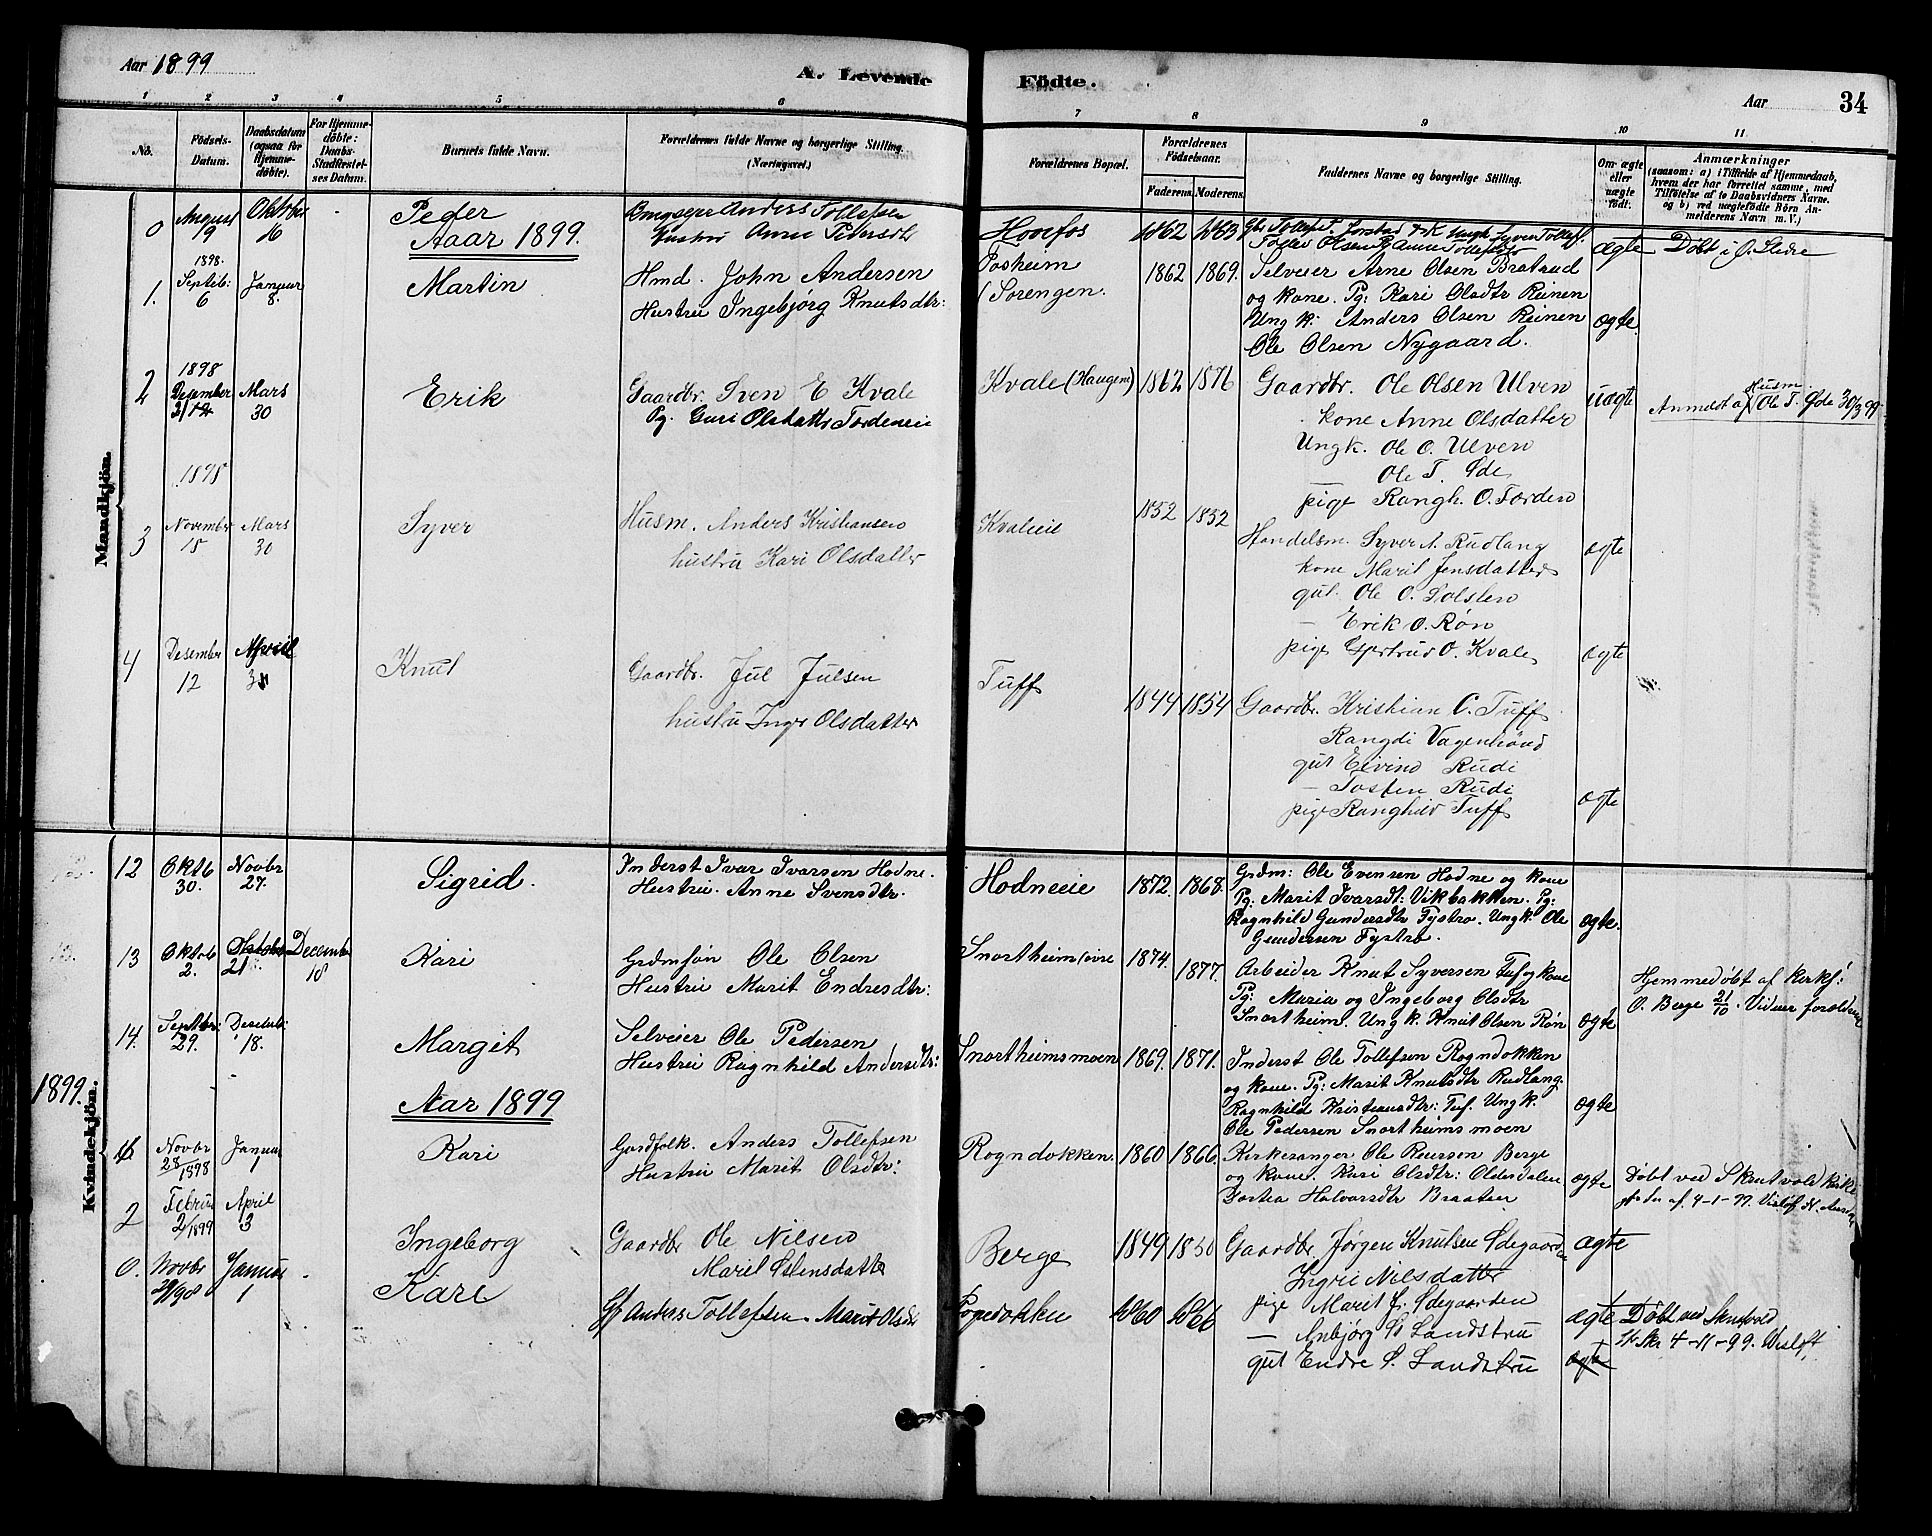 Aar 1899
A. Levende Födte.
Aar 34
1 2 3 4 5 6 7 8 9 10 11
No.
Födsels-Datum.
Daabsdatum (ogsaa for Hjemme-döbte).
For Hjemme-döbte: Daabs-Stadfæstel-ses Datum.
Barnets fulde Navn.
Forældrenes fulde Navne og borgerlige Stilling. (Næringsvei.)
Forældrenes Bopæl.
Forældrenes Födselsaar.
Faderens. Moderens.
Faddernes Navne og borgerlige Stilling.
Om ægte eller uægte födt.
Anmærkninger
(saasom: a) i Tilfælde af Hjemmedaab, hvem der har forrettet samme, med Tilföielse af to Daabsvidners Navne. og b) ved uægtefödte Börn An-melderens Navn m. V.)
Mandkjön.
0 August 19 Oktober 16 Peder
Anders Tollefsen
Hustru Anne Pedersdtr
Hovefos 1862 1863
Tollef Olsen
ægte Döbt i Ø. Slidre
Aaar 1899.
1. 1898. Septeb: 6 Januar 8. Martin
Hmd. John Andersen
Hustru Ingebjörg Knutsdtr:
Posheim (Sorengen. 1862 1869.
Selveier Arne Olsen Bratrud
og kone. Pg: Kari Olsdtr Reinen
Ung k: Anders Olsen Reinen
Ole Olsen Nygaard.
ægte.
2 1898 Desember Mars 30 Erik
Gaardbr. Sven E Kvale
Pg. Guri Olsdatter
Kvale (Haugen) 1862 1876
Gaardbr. Ole Olsen Ulven
kone Anne Olsdatter
Ungk. Ole O. Ulven
Ole T. Øde
pige Rangh. O. Forden
uægte
Anmeldt a/ Husm. Ole T. Øde 30/3 99.
3 1898 November 15 Mars 30 Syver
Husm. Anders Kristiansen
hustru Kari Olsdatter
Kvaleeie 1852 1852
Handelsm. Syver A. Rudlang
kone Marit Jensdatter
gut. Ole O. Dolsten
— Erik O. Røn
pige Gjertrud O. Kvale
ægte
4 Desember 12 April Knut
Gaardbr. Jul Julsen
hustru Inger Olsdatter
Tuff 1844 1854
ægte
Gaardbr. Kristian C. Tuff
Rangdi
gut Eivind Rudi
— Tosten Rudi
pige Ranghild Tuff
ægte
Kvindekjön.
12 Oktb 30. Novbr 27. Sigrid.
Inderst Ivar Ivarsen Hodne.
Hustru. Anne Svensdtr.
Hodneeie 1872. 1868.
Grdm: Ole Evensen Hodne og kone
Pg: Marit Ivarsdt: Vikbakken. Pg:
Ragnhild Gundersdtr Fystro. Ung k. Ole
Gundersen Fystro.
ægte.
13 Oktob 2. Oktober 21. December 18 Kari
Grdmsøn Ole Olsen
Hustru Marit Endresdtr:
Snortheim 1874. 1877.
Arbeider Knut Syversen Tuf og kone
Pg: Maria og Ingeborg Olsdtr
Snortheim. Ung k. Knut Olsen Røn
ægte
Hjemmedøbt af kirks:
O. Berge 21/10. Vidner forældrene
14. Septbr: 29. Desemb: 18. Margit
Selveier Ole Pedersen
Hustru Ragnhild Andersdtr:
Snortheimsmoen 1869. 1871.
Inderst Ole Tollefsen Rogndokken
og kone. Pg: Marit Knutsdtr Rudlang.
Ragnhild Kristiansdtr: Tuf. Ung k.
Ole Pedersen Snortheimsmoen
ægte
1899.
Aar 1899
Novbr 28/1898 Januar Kari
Gaardfolk. Anders Tollefsen
Hustru Marit Olsdtr:
Rogndokken. 1860 1866.
Kirkesanger Ole Berge
og kone. Kari Olsdtr: Oldersdalen
Halvorsdtr Braaten
ægte
Döbt ved Skrutvold kirke
2 Februar 2/1899 April 3 Ingeborg
Gaardbr Ole Nilsen
Marit Østensdatter
Berge 1849 1850
Gaardbr. Jørgen Knutsen Ødegaarden
Ingri Nilsdatter
pige Marit J. Ødegaarden
— Anbjørg S. Landstru
gut Endre S. Landstru
ægte
0. Novbr 28/98 Januar 1 Kari
Gf Anders Tollefsen. Marit Olsdr
1860 1866
ægte
Döbt ved Skrutvold
ægte